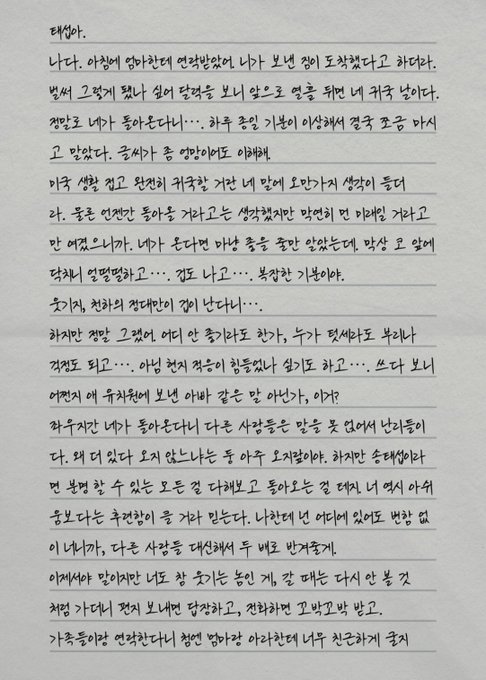 태섭아.
나다. 아침에 엄마한테 연락받았어. 니가 보낸 짐이 도착했다고 하더라.
벌써 그렇게 됐나 싶어 달력을 보니 앞으로 열흘 뒤면 네 귀국 날이다.
정말로 네가 돌아온다니…. 하루 종일 기분이 이상해서 결국 조금 마시
고 말았다. 글씨가 좀 엉망이어도 이해해.
미국 생활 접고 완전히 귀국할 거란 네 말에 오만가지 생각이 들더
라. 물론 언젠간 돌아올 거라고는 생각했지만 막연히 먼 미래일 거라고
만 여겼으니까. 네가 온다면 마냥 좋을 줄만 알았는데. 막상 코 앞에
닥치니 얼떨떨하고…. 겁도 나고…. 복잡한 기분이야.
웃기지, 천하의 정대만이 겁이 난다니….
하지만 정말 그랬어. 어디 안 좋기라도 한가, 누가 텃세라도 부리나
걱정도 되고…. 아님 현지 적응이 힘들었나 싶기도 하고…. 쓰다 보니
어쩐지 애 유치원에 보낸 아빠 같은 말 아닌가, 이거?
좌우지간 네가 돌아온다니 다른 사람들은 말을 못 얹어서 난리들이
다. 왜 더 있다 오지 않느냐는 둥 아주 오지랖이야. 하지만 송태섭이라
면 분명 할 수 있는 모든 걸 다해보고 돌아오는 걸 테지. 너 역시 아쉬
움보다는 후련함이 클 거라 믿는다. 나한테 넌 어디에 있어도 변함 없
이 너니까, 다른 사람들 대신해서 두 배로 반겨줄게.
이제서야 말이지만 너도 참 웃기는 놈인 게, 갈 때는 다시 안 볼 것
처럼 가더니 편지 보내면 답장하고, 전화하면 꼬박꼬박 받고.
가족들이랑 연락한다니 첨엔 엄마랑 아라한테 너무 친근하게 굴지